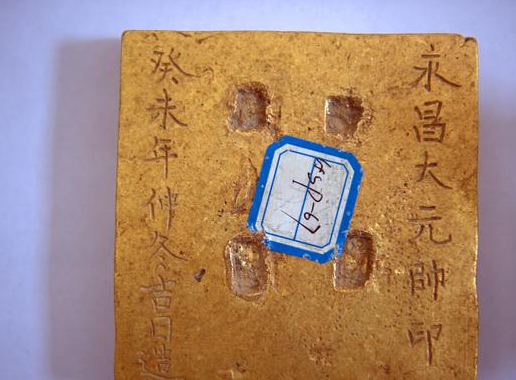 永昌大元帅印
癸未年仲冬吉日造